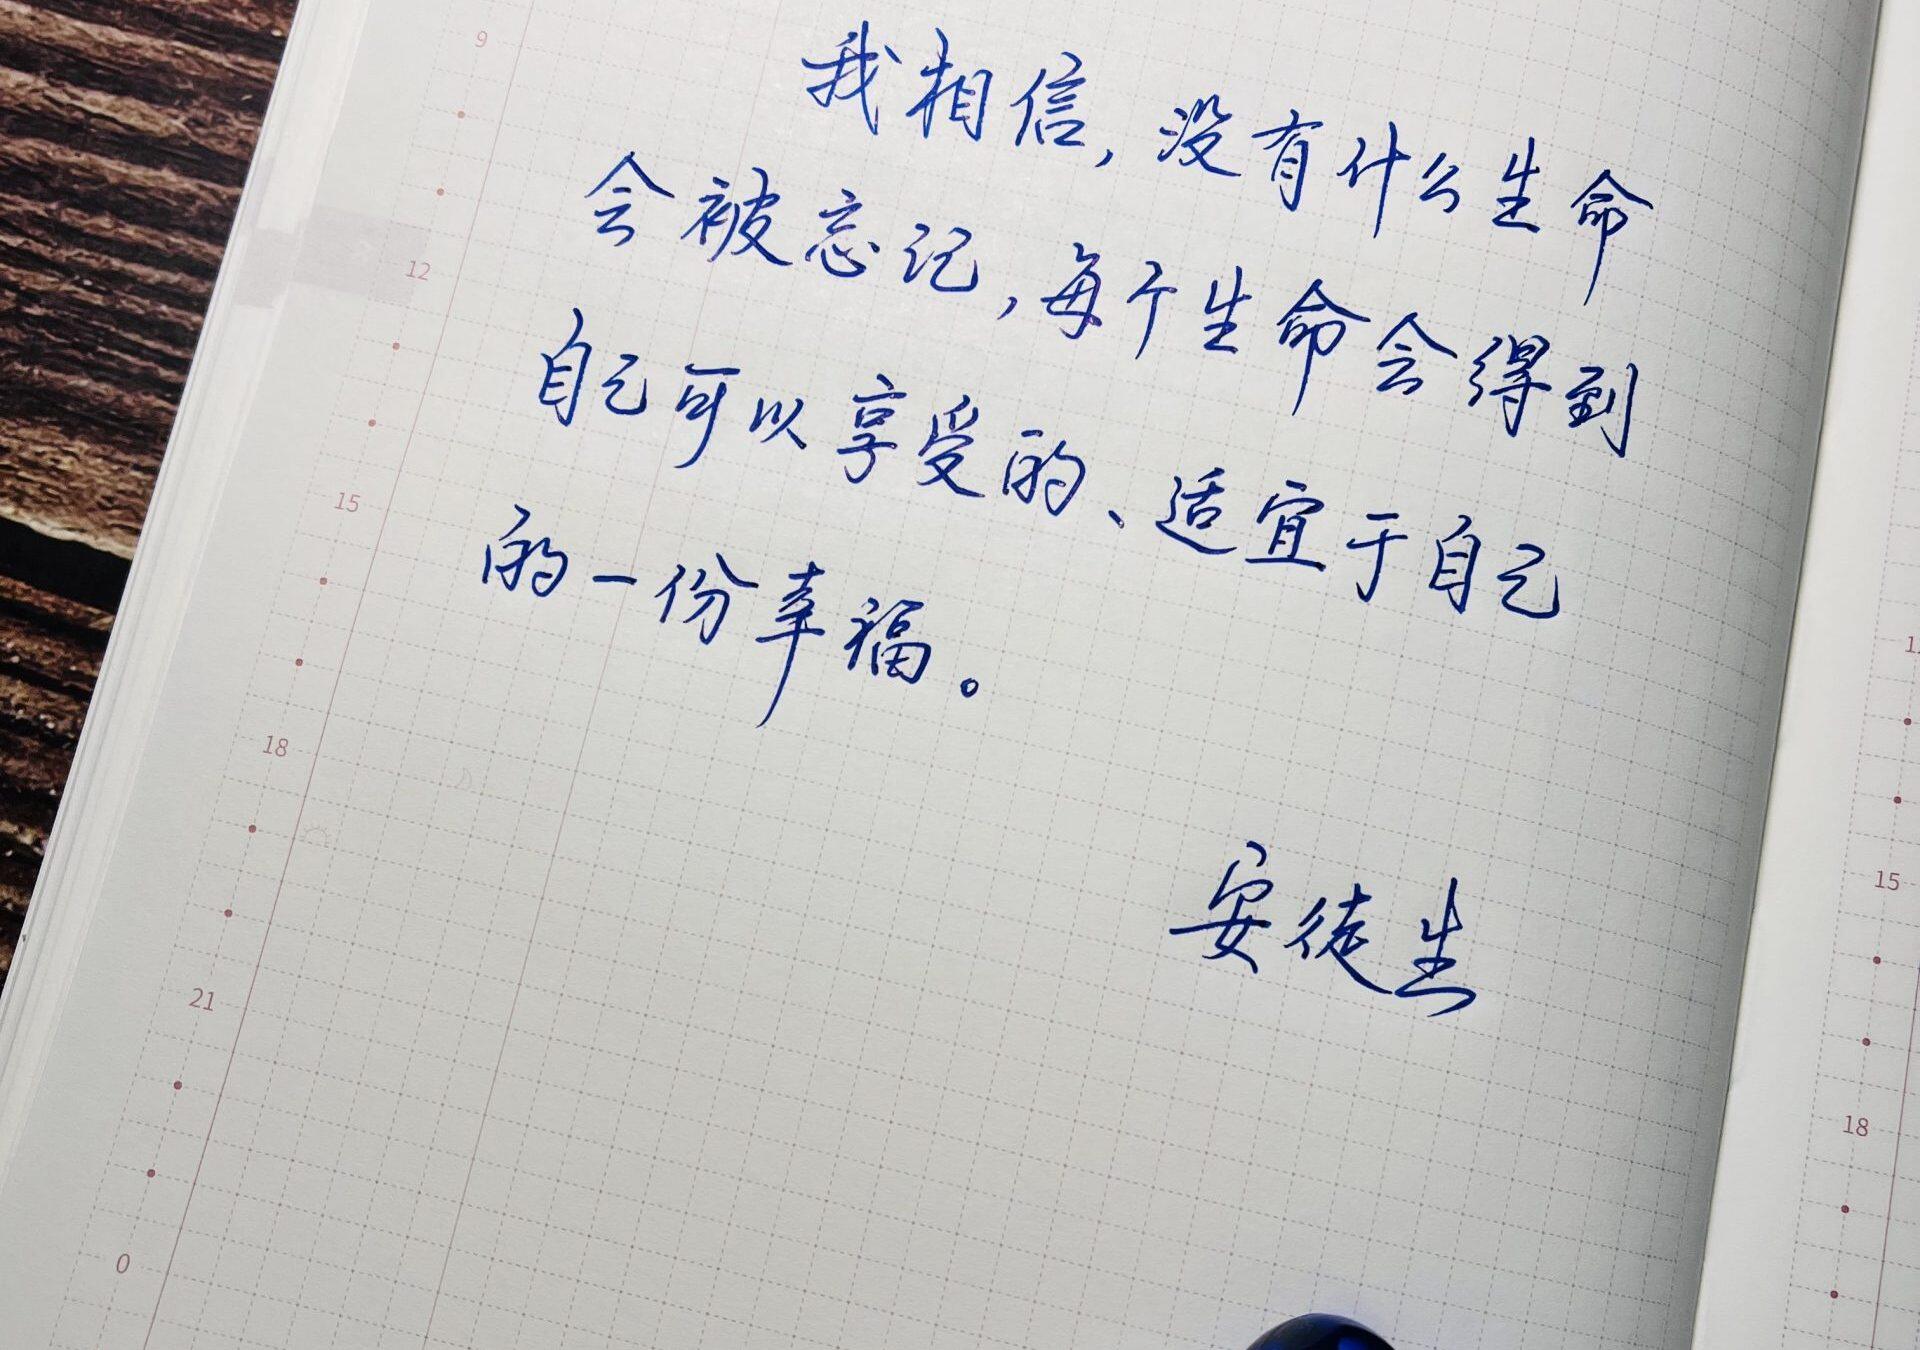 我相信,没有什么生命
会被忘记,每个生命会得到
自己可以享受的、适宜于自己
的一份幸福。
安徒生
9
12
15
18
21
0
15
18